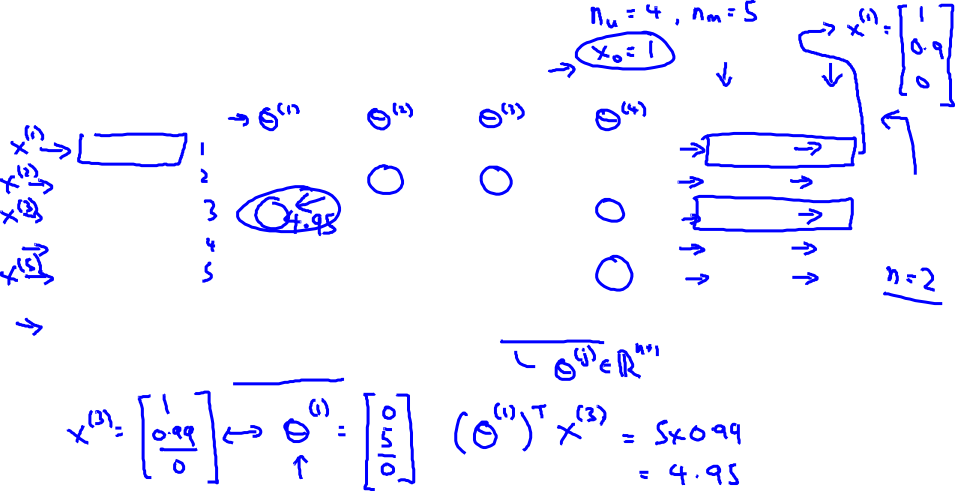 n_u = 4 , n_m = 5
x_0 = 1
x^(1) = [1 0.9 0]
θ^(1) θ^(2) θ^(3) θ^(4)
x^(1) 1
x^(2) 2
3 4.95
4
x^(5) 5
n = 2
θ^(j) ∈ ℝ^n+1
x^(3) = [1 0.99 0] ↔ θ^(1) = [0 5 0] (θ^(1))^T x^(3) = 5x0.99
= 4.95